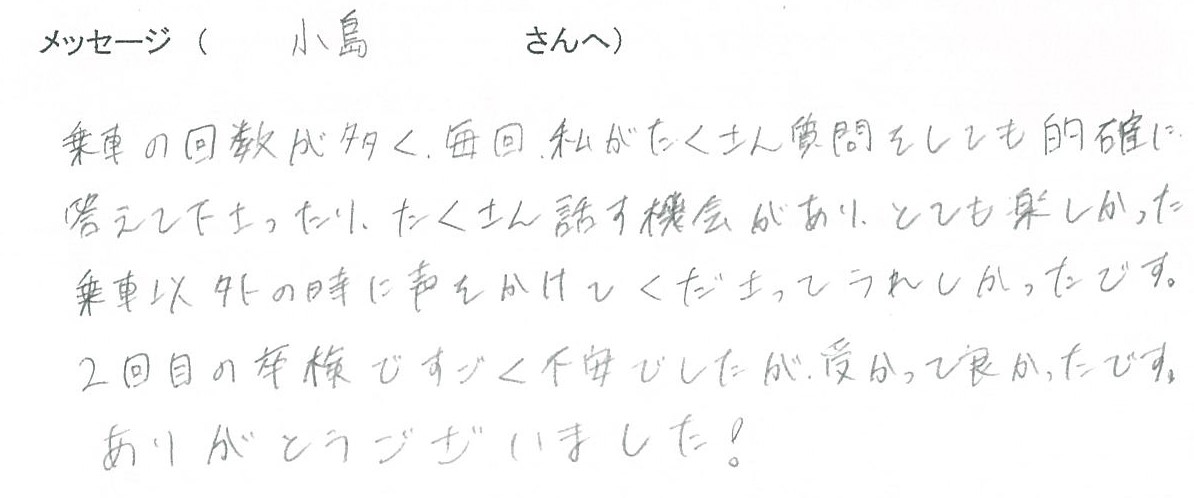 メッセージ（ 小島 さんへ）
乗車の回数が多く、毎回、私がたくさん質問をしても的確に
答えて下さったり、たくさん話す機会があり、とても楽しかった
乗車以外の時に声をかけてくださってうれしかったです。
2回目の卒検ですごく不安でしたが、受かって良かったです。
ありがとうございました！